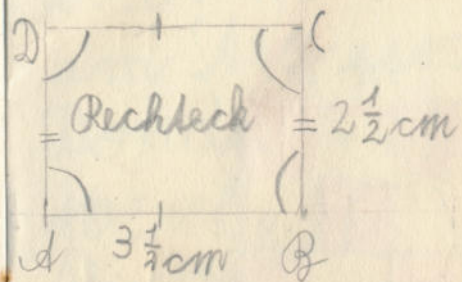 D C
Rechteck = 2 1/2 cm
=
A 3 1/2 cm B